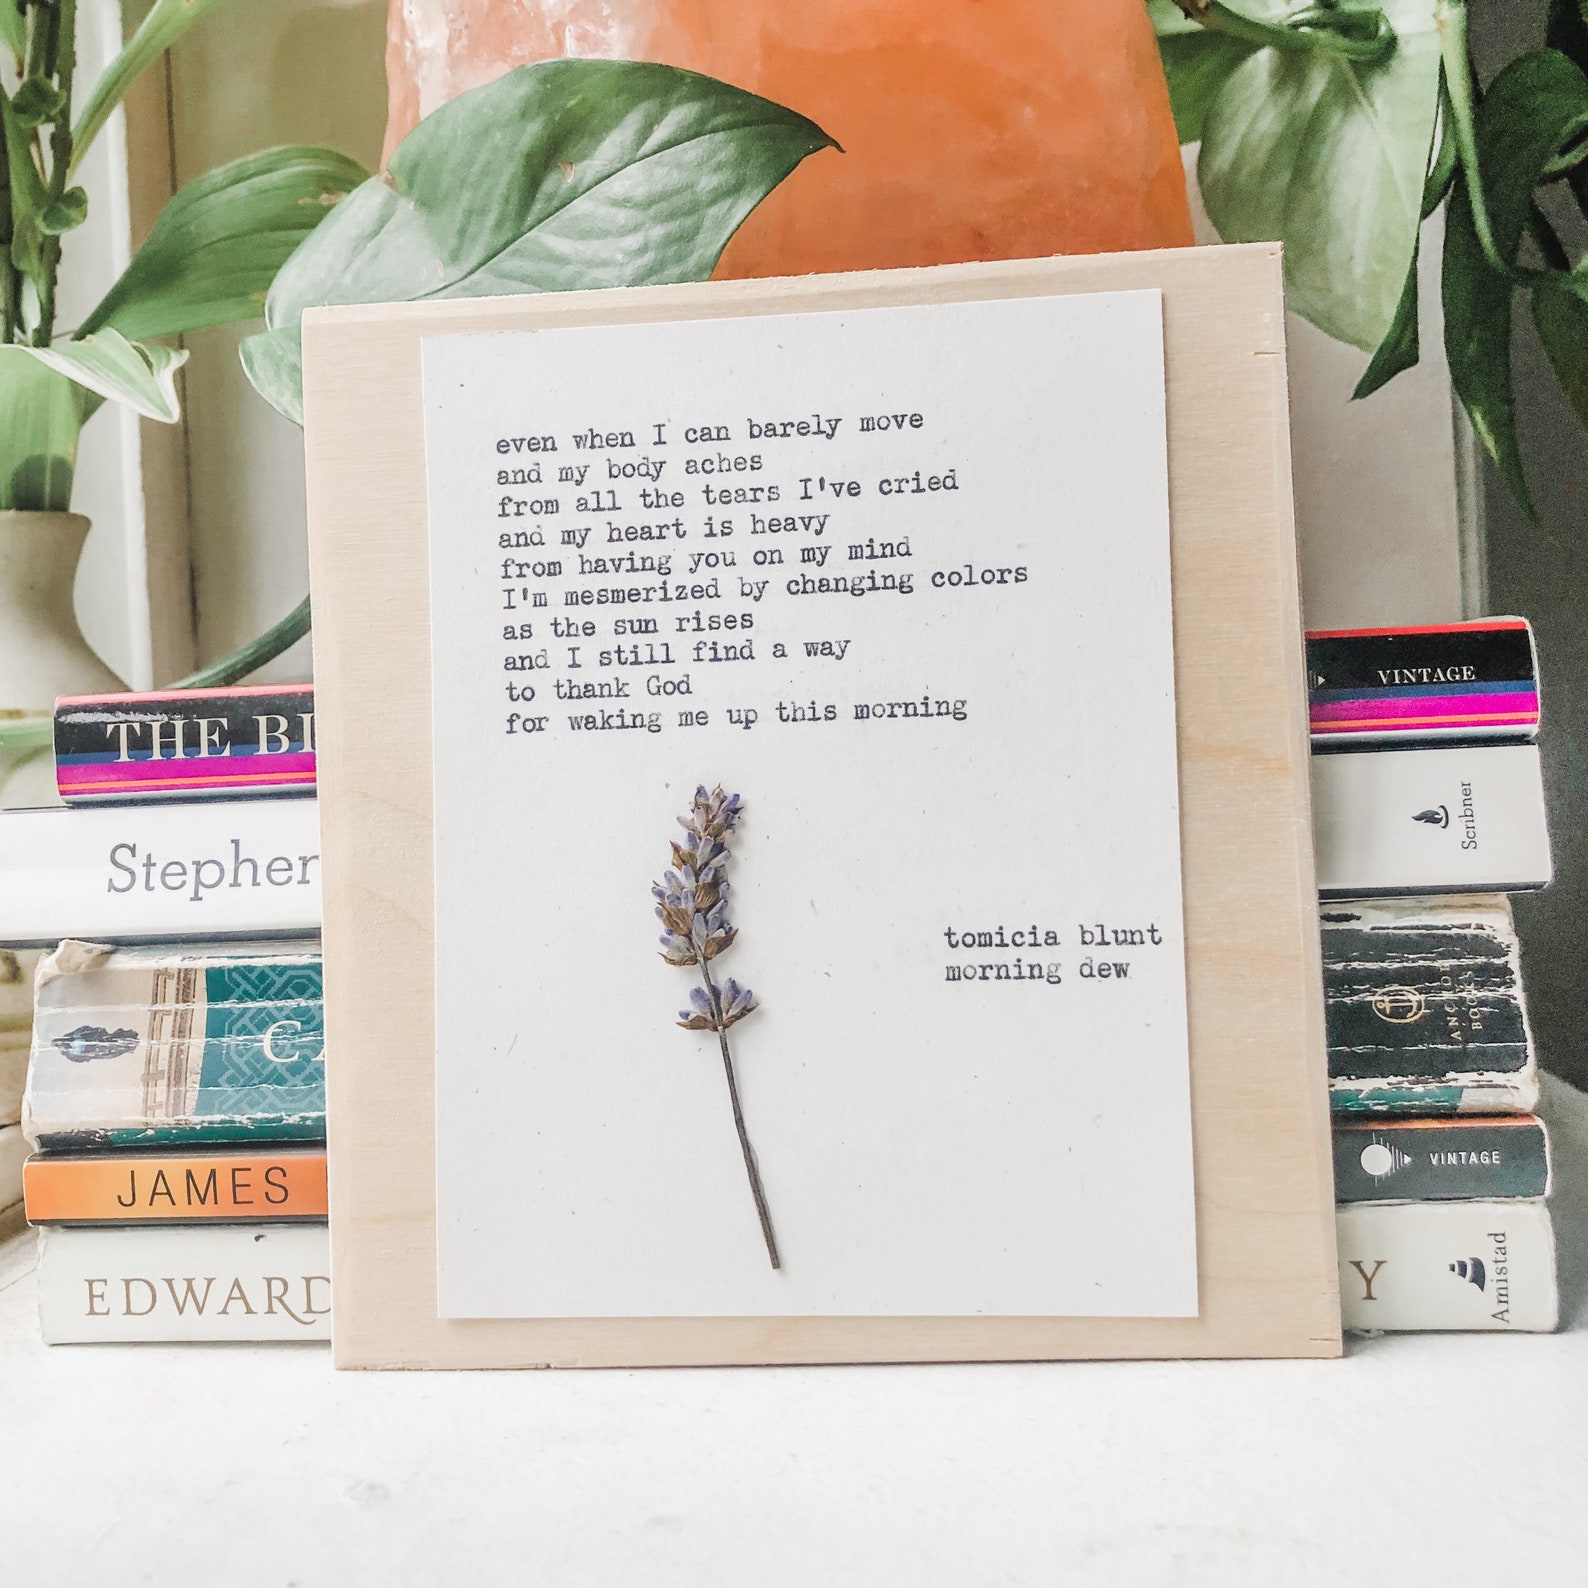 even when I can barely move
and my body aches
from all the tears I've cried
and my heart is heavy
from having you on my mind
I'm mesmerized by changing colors
as the sun rises
and I still find a way
to thank God
for waking me up this morning
tomicia blunt
morning dew
THE BL
VINTAGE
Stephen
Scribner
CA
ANCHOR
BOOKS
JAMES
VINTAGE
EDWARD
Y
Amistad